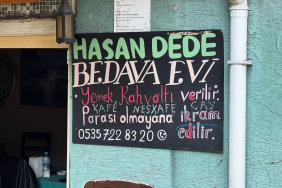 HASAN DEDE
BEDAVA EVİ
Yemek, Kahvaltı verilir.
KAFE NESKAFE ÇAY
Parası olmayana ikram
edilir.
0535 722 83 20